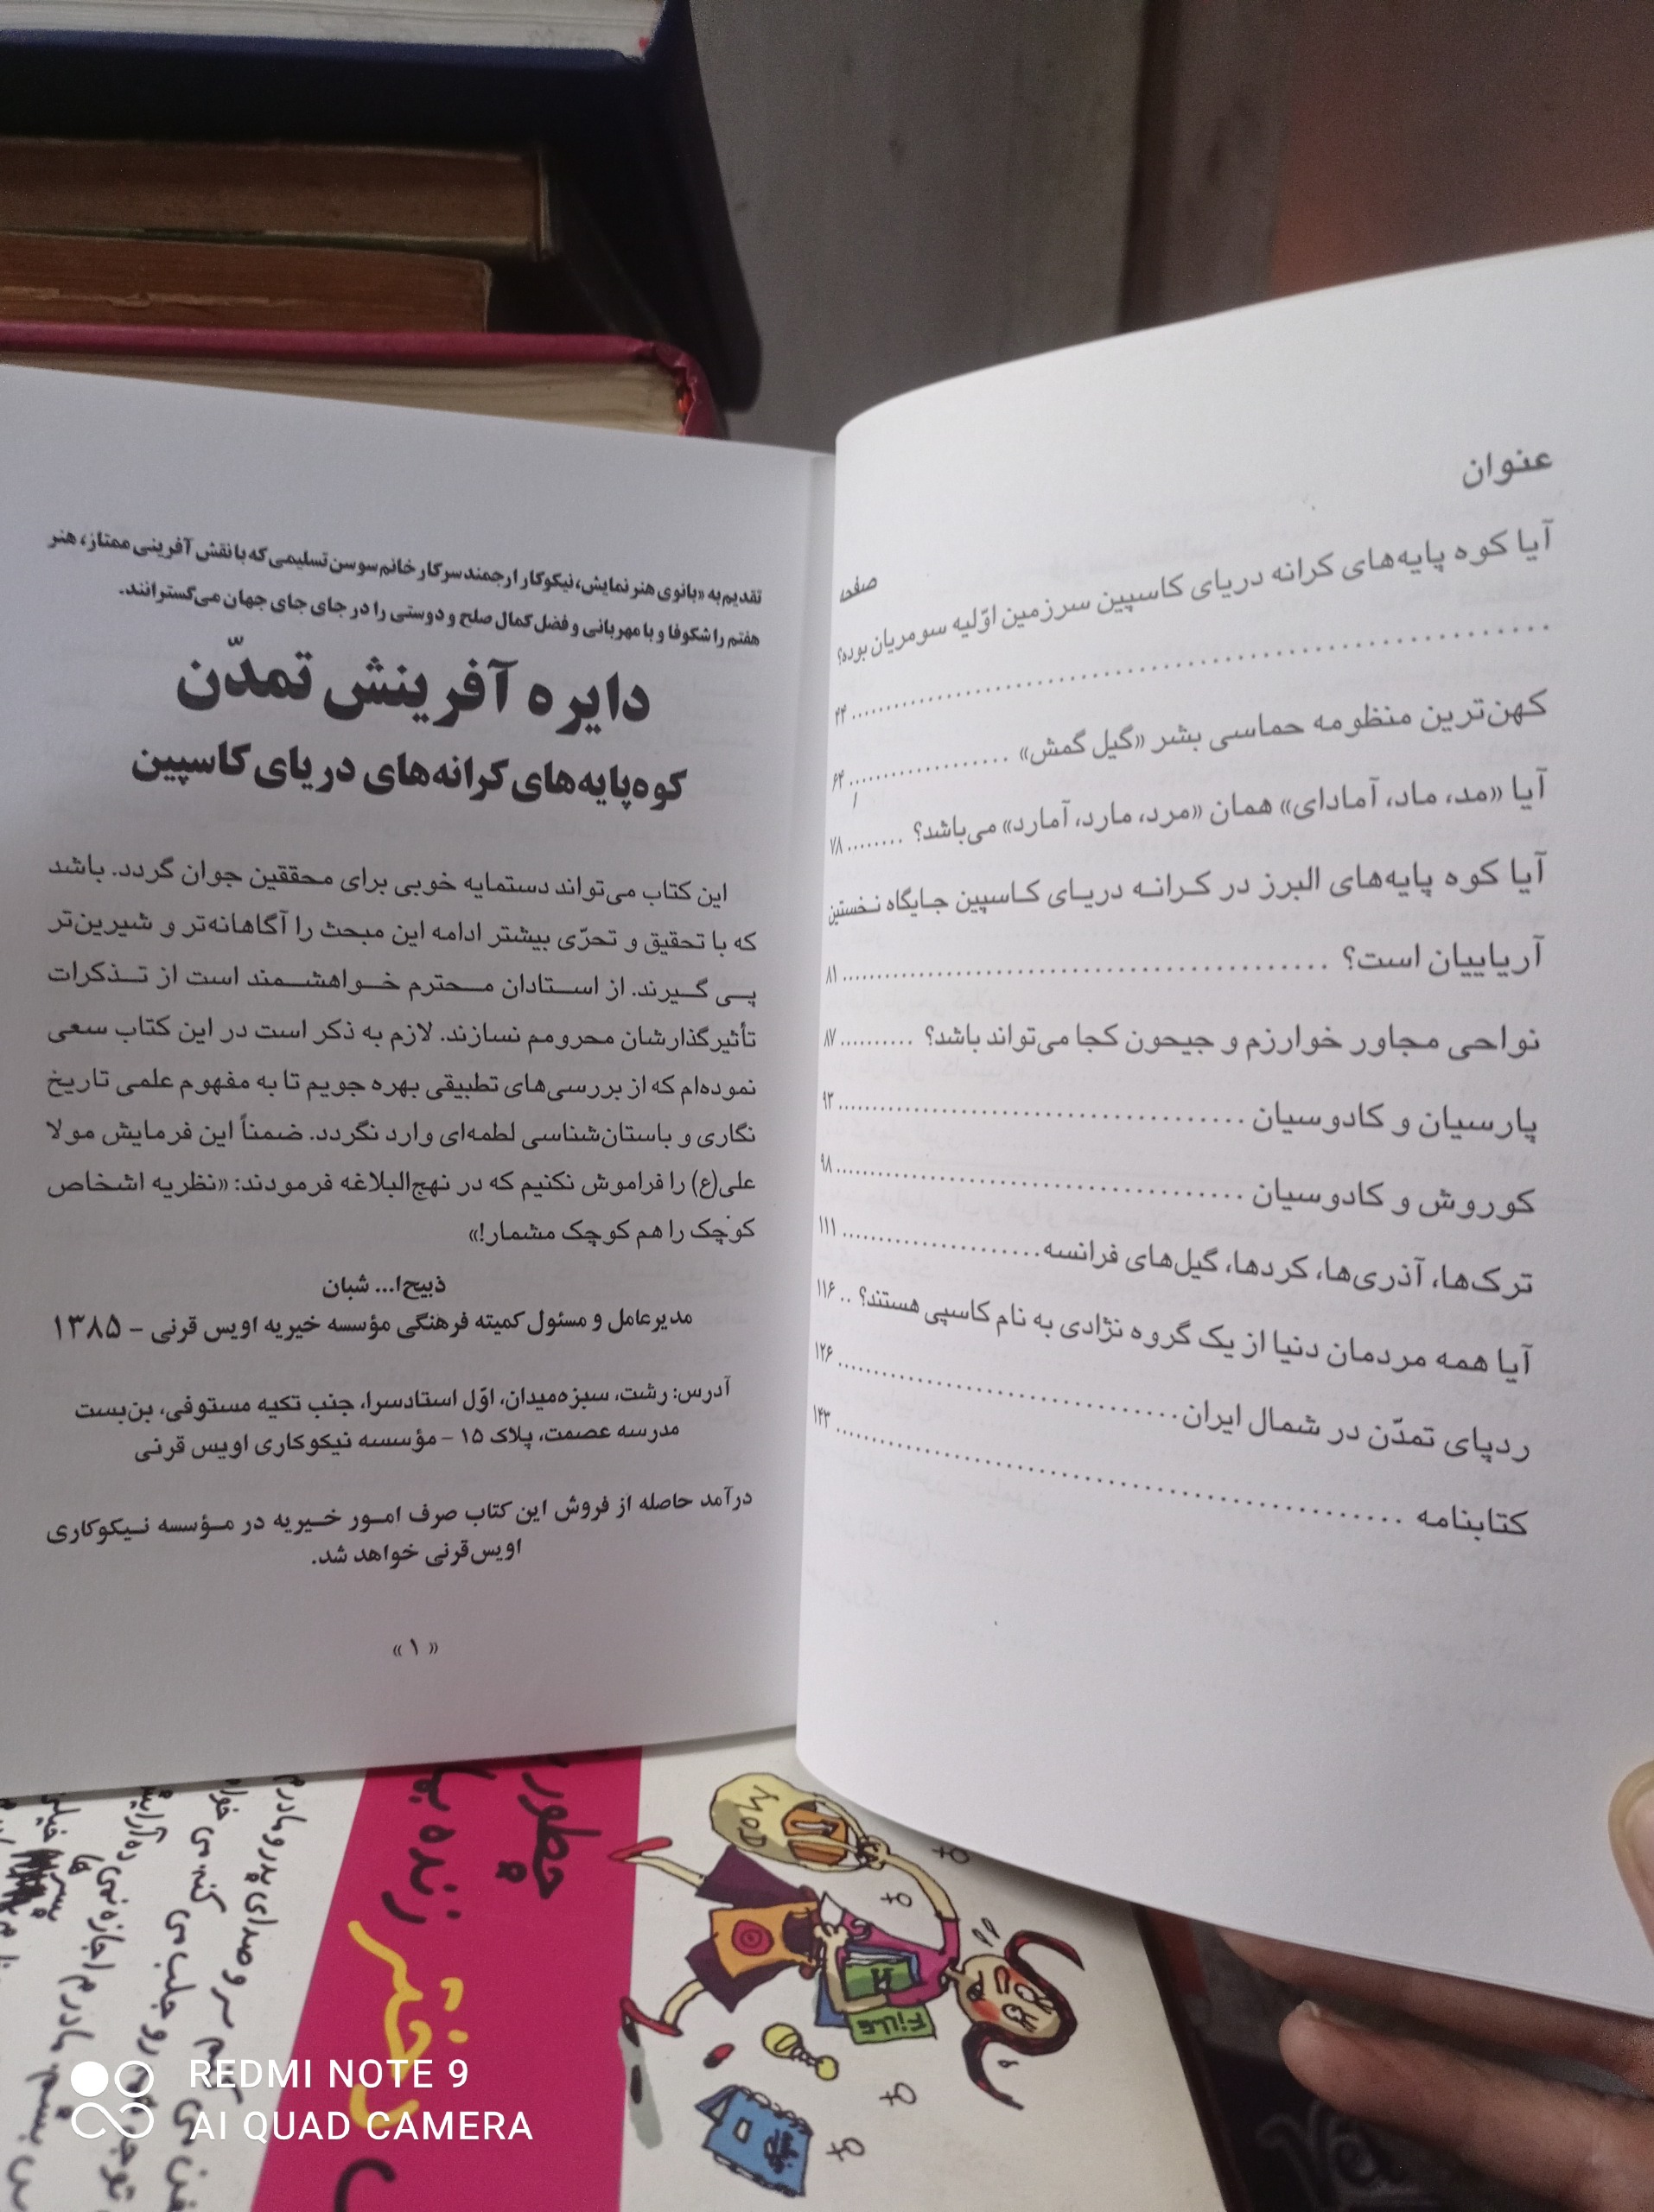 عنوان
صفحه
آیا کوه پایه‌های کرانه دریای کاسپین سرزمین اوّلیه سومریان بوده؟
........................................ ۴۴
کهن‌ترین منظومه حماسی بشر «گیل گمش» .................. ۶۴
آیا «مد، ماد، آمادای» همان «مرد، مارد، آمارد» می‌باشد؟ ........ ۷۸
آیا کوه پایه‌های البرز در کرانه دریای کاسپین جایگاه نخستین
آریاییان است؟ ........................................ ۸۱
نواحی مجاور خوارزم و جیحون کجا می‌تواند باشد؟ .......... ۸۷
پارسیان و کادوسیان ........................................ ۹۳
کوروش و کادوسیان ........................................ ۹۸
ترک‌ها، آذری‌ها، کردها، گیل‌های فرانسه ..................... ۱۱۱
آیا همه مردمان دنیا از یک گروه نژادی به نام کاسپی هستند؟ .. ۱۱۶
ردپای تمدّن در شمال ایران .................................. ۱۲۶
کتابنامه ........................................ ۱۴۳
تقدیم به «بانوی هنر نمایش، نیکوکار ارجمند سرکار خانم سوسن تسلیمی که با نقش آفرینی ممتاز، هنر
هفتم را شکوفا و با مهربانی و فضل کمال صلح و دوستی را در جای جای جهان می‌گسترانند.
دایره آفرینش تمدّن
کوه‌پایه‌های کرانه‌های دریای کاسپین
این کتاب می‌تواند دستمایه خوبی برای محققین جوان گردد. باشد
که با تحقیق و تحرّی بیشتر ادامه این مبحث را آگاهانه‌تر و شیرین‌تر
پی گیرند. از استادان محترم خواهشمند است از تذکرات
تأثیرگذارشان محرومم نسازند. لازم به ذکر است در این کتاب سعی
نموده‌ام که از بررسی‌های تطبیقی بهره جویم تا به مفهوم علمی تاریخ
نگاری و باستان‌شناسی لطمه‌ای وارد نگردد. ضمناً این فرمایش مولا
علی(ع) را فراموش نکنیم که در نهج‌البلاغه فرمودند: «نظریه اشخاص
کوچک را هم کوچک مشمار!»
ذبیح‌ا... شبان
مدیرعامل و مسئول کمیته فرهنگی مؤسسه خیریه اویس قرنی - ۱۳۸۵
آدرس: رشت، سبزه‌میدان، اوّل استادسرا، جنب تکیه مستوفی، بن‌بست
مدرسه عصمت، پلاک ۱۵ - مؤسسه نیکوکاری اویس قرنی
درآمد حاصله از فروش این کتاب صرف امور خیریه در مؤسسه نیکوکاری
اویس‌قرنی خواهد شد.
« ۱ »
چطور
زنده
دختر
MOD
FILE
REDMI NOTE 9
AI QUAD CAMERA